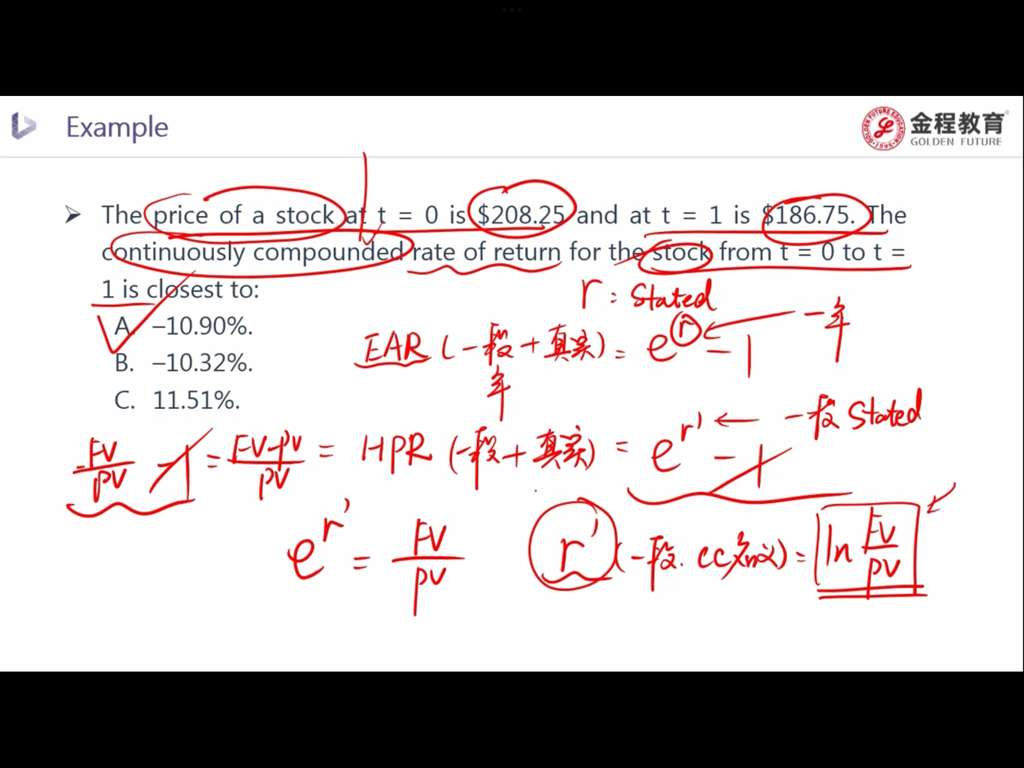 Example
金程教育
GOLDEN FUTURE
The price of a stock at t = 0 is $208.25 and at t = 1 is $186.75. The
continuously compounded rate of return for the stock from t = 0 to t =
1 is closest to:
r : Stated
A. –10.90%.
EAR (一段+真实) = e^r – 1 ← 一年
年
B. –10.32%.
C. 11.51%.
FV/PV – 1 = FV-PV/PV = HPR (一段+真实) = e^r' – 1 ← 一段 Stated
e^r' = FV/PV
r' (一段. CC名义) = ln FV/PV